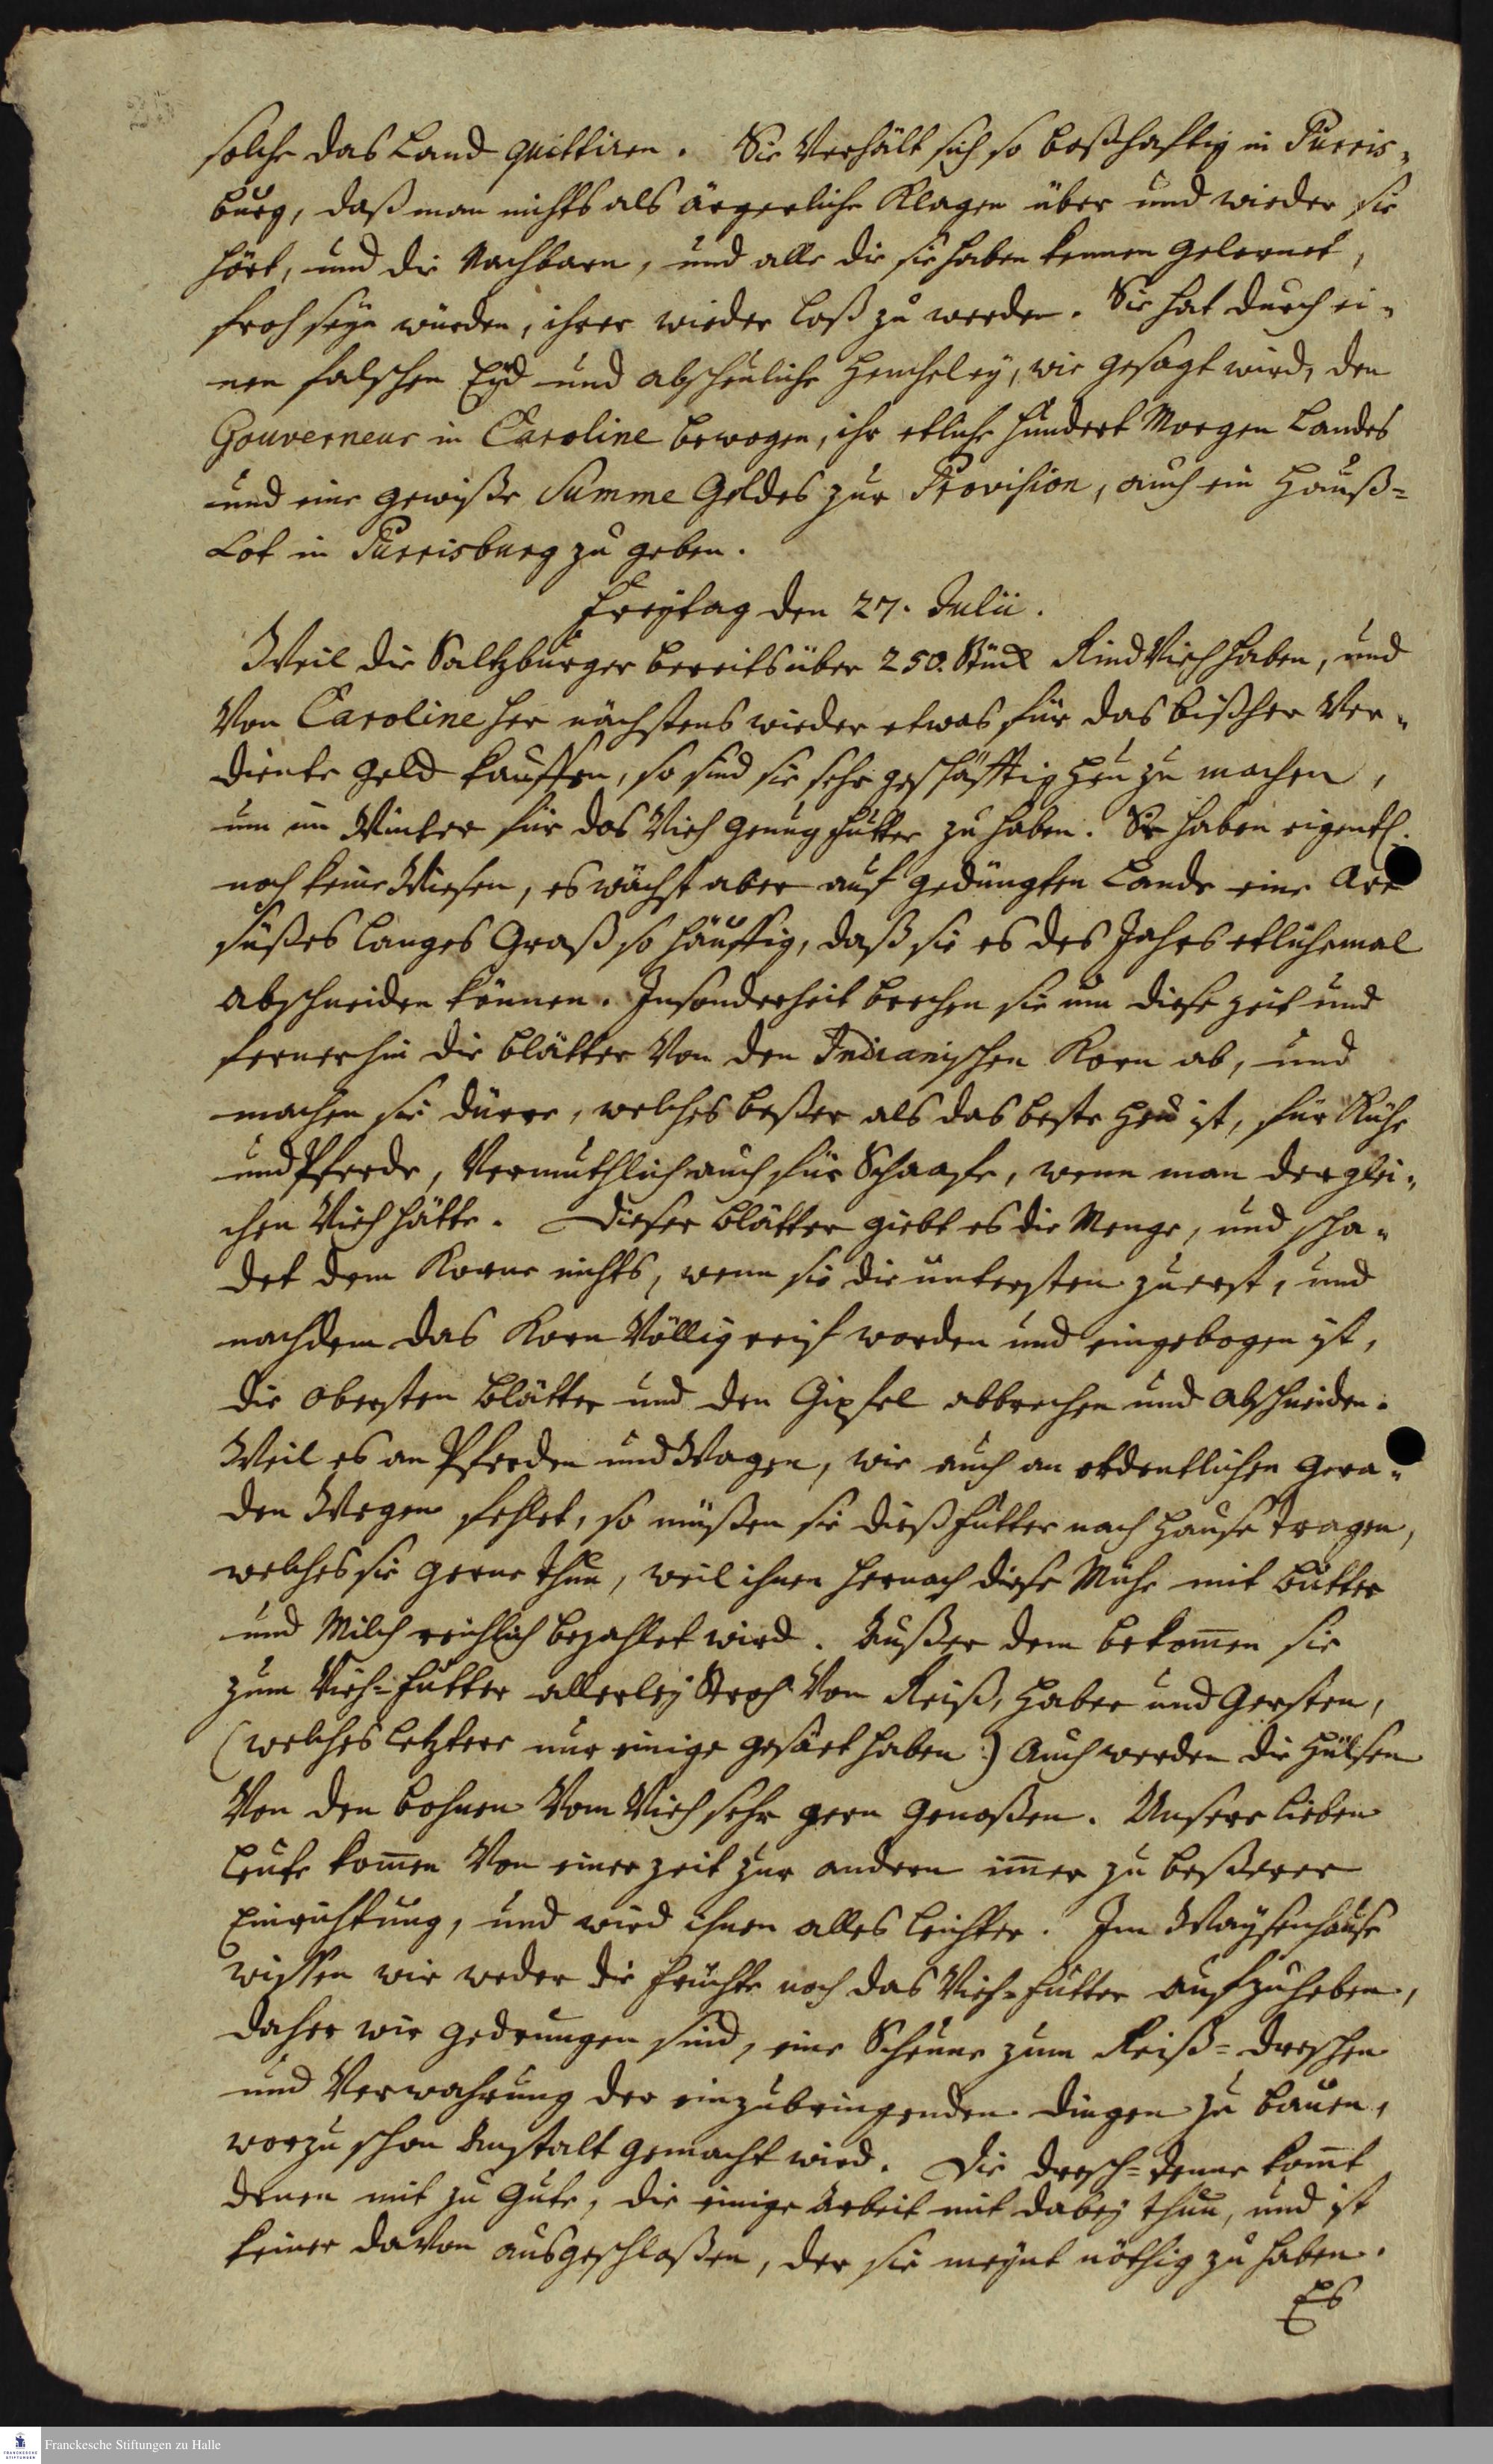 solche das Land quittiren. Sie Verhält sich so boßhafftig in Purris-
burg, daß man nichts als ärgerliche Klagen über und wieder sie
hört, und die Nachbarn, und alle die sie haben kennen gelernet,
froh seyn würden, ihrer wieder loß zu werden. Sie hat durch ei-
nen falschen Eyd und abscheuliche Heucheley, wie gesagt wird, den
Gouverneur in Caroline bewogen, ihr etliche hundert Morgen Landes
und eine gewiße Summe Geldes zur Provision, auch ein Hauß-
Lot in Purrisburg zu geben.
Freytag den 27. Julii.
Weil die Saltzburger bereits über 250. Stück Rind Vieh haben, und
Von Caroline her nächstens wieder etwas für das bißher Ver-
diente Geld kauffen, so sind sie sehr geschäfftig Heu zu machen,
um im Winter für das Vieh genug Futter zu haben. Sie haben eigentl.
noch keine Wiesen, es wächst aber auf gedüngten Lande eine Art
süßes langes Graß so häuffig, daß sie es des Jahrs etlichemal
abschneiden können. Insonderheit brechen sie um diese Zeit und
fernerhin die Blätter Von den Indianischen Korn ab, und
machen sie dürre, welches beßer als das beste Heu ist, für Kühe
und Pferde, Vermuthlich auch für Schaafe, wenn man derglei-
chen Vieh hätte. Dieser Blätter giebt es die Menge, und scha-
det dem Korne nichts, wenn sie die untersten zuerst, und
nachdem das Korn Völlig reif worden und eingebogen ist,
die obersten Blätter und den Gipfel abbrechen und abschneiden.
Weil es an Pferden und Wagen, wie auch an ordentlichen gera-
den Wegen fehlet, so müßen sie dieß Futter nach Hause tragen,
welches sie gerne thun, weil ihnen hernach diese Mühe mit Butter
und Milch reichlich bezahlet wird. Außer dem bekom̄en sie
zum Vieh-Futter allerley Stroh Von Reiß, Haber und Gersten,
(welches letztere nur einige gesäet haben:) Auch werden die Hülsen
Von den Bohnen Vom Vieh sehr gern genoßen. Unsere lieben
Leute kom̄en Von einer Zeit zur andern im̄er zu beßerer
Einrichtung, und wird ihnen alles leichter. Im Waysenhause
wissen wir weder die Früchte noch das Vieh-Futter aufzuheben,
daher wir gedrungen sind, eine Scheune zum Reiß-dreschen
und Verwahrung der einzubringenden Dingen zu bauen,
worzu schon Anstalt gemacht wird. Die Dresch-Tenne kom̄t
denen mit zu Gute, die einige Arbeit mit dabey thun, und ist
keiner davon ausgeschloßen, der sie meynt nöthig zu haben.
Es
Franckesche Stiftungen zu Halle